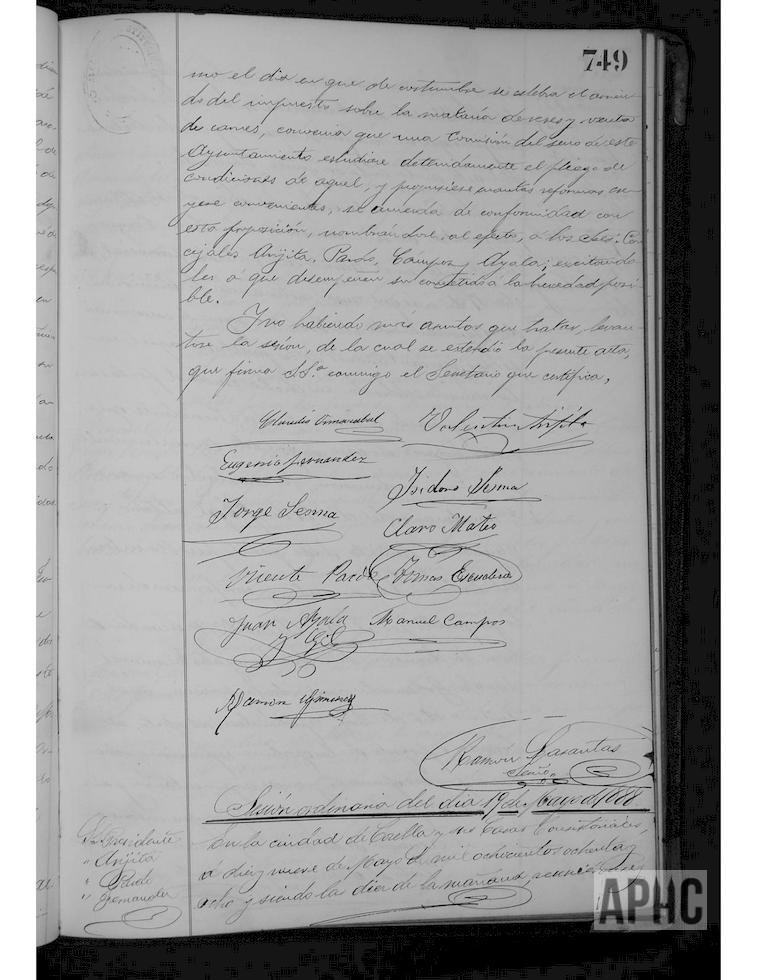 749
mo el dia en que de costumbre se celebra el arrien-
do del impuesto sobre la matanza de reses y venta
de carnes, convenia que una Comisión del seno de este
Ayuntamiento estudiase detenidamente el pliego de
condiciones de aquel, y propusiese cuantas reformas cre-
yese convenientes, se acuerda de conformidad con
esta proposición, nombrándose, al efecto, á los Sres. Con-
cejales Arijita, Pardo, Campos y Ayala; excitando
les á que desempeñen su cometido á la brevedad posi-
ble.
Y no habiendo más asuntos que tratar, levan-
tose la sesión, de la cual se estendió la presente acta,
que firma S.S.ª conmigo el Secretario que certifica,
Valentin Arijita
Eugenio Fernandez
Isidoro Sesma
Jorge Sesma
Claro Mateo
Vicente Pardo
Tomás Escudero
Juan Ayala
y Gil
Manuel Campos
Ramon Gimenez
Ramón Lasantas
Srio.
Sesión ordinaria del dia 19 de Mayo de 1888.
Sr. Presidente
" Arijita
" Pardo
" Fernandez
En la ciudad de Corella y sus Casas Consistoriales,
á diez y nueve de Mayo de mil ochocientos ochenta y
ocho y siendo las diez de la mañana,
APHC